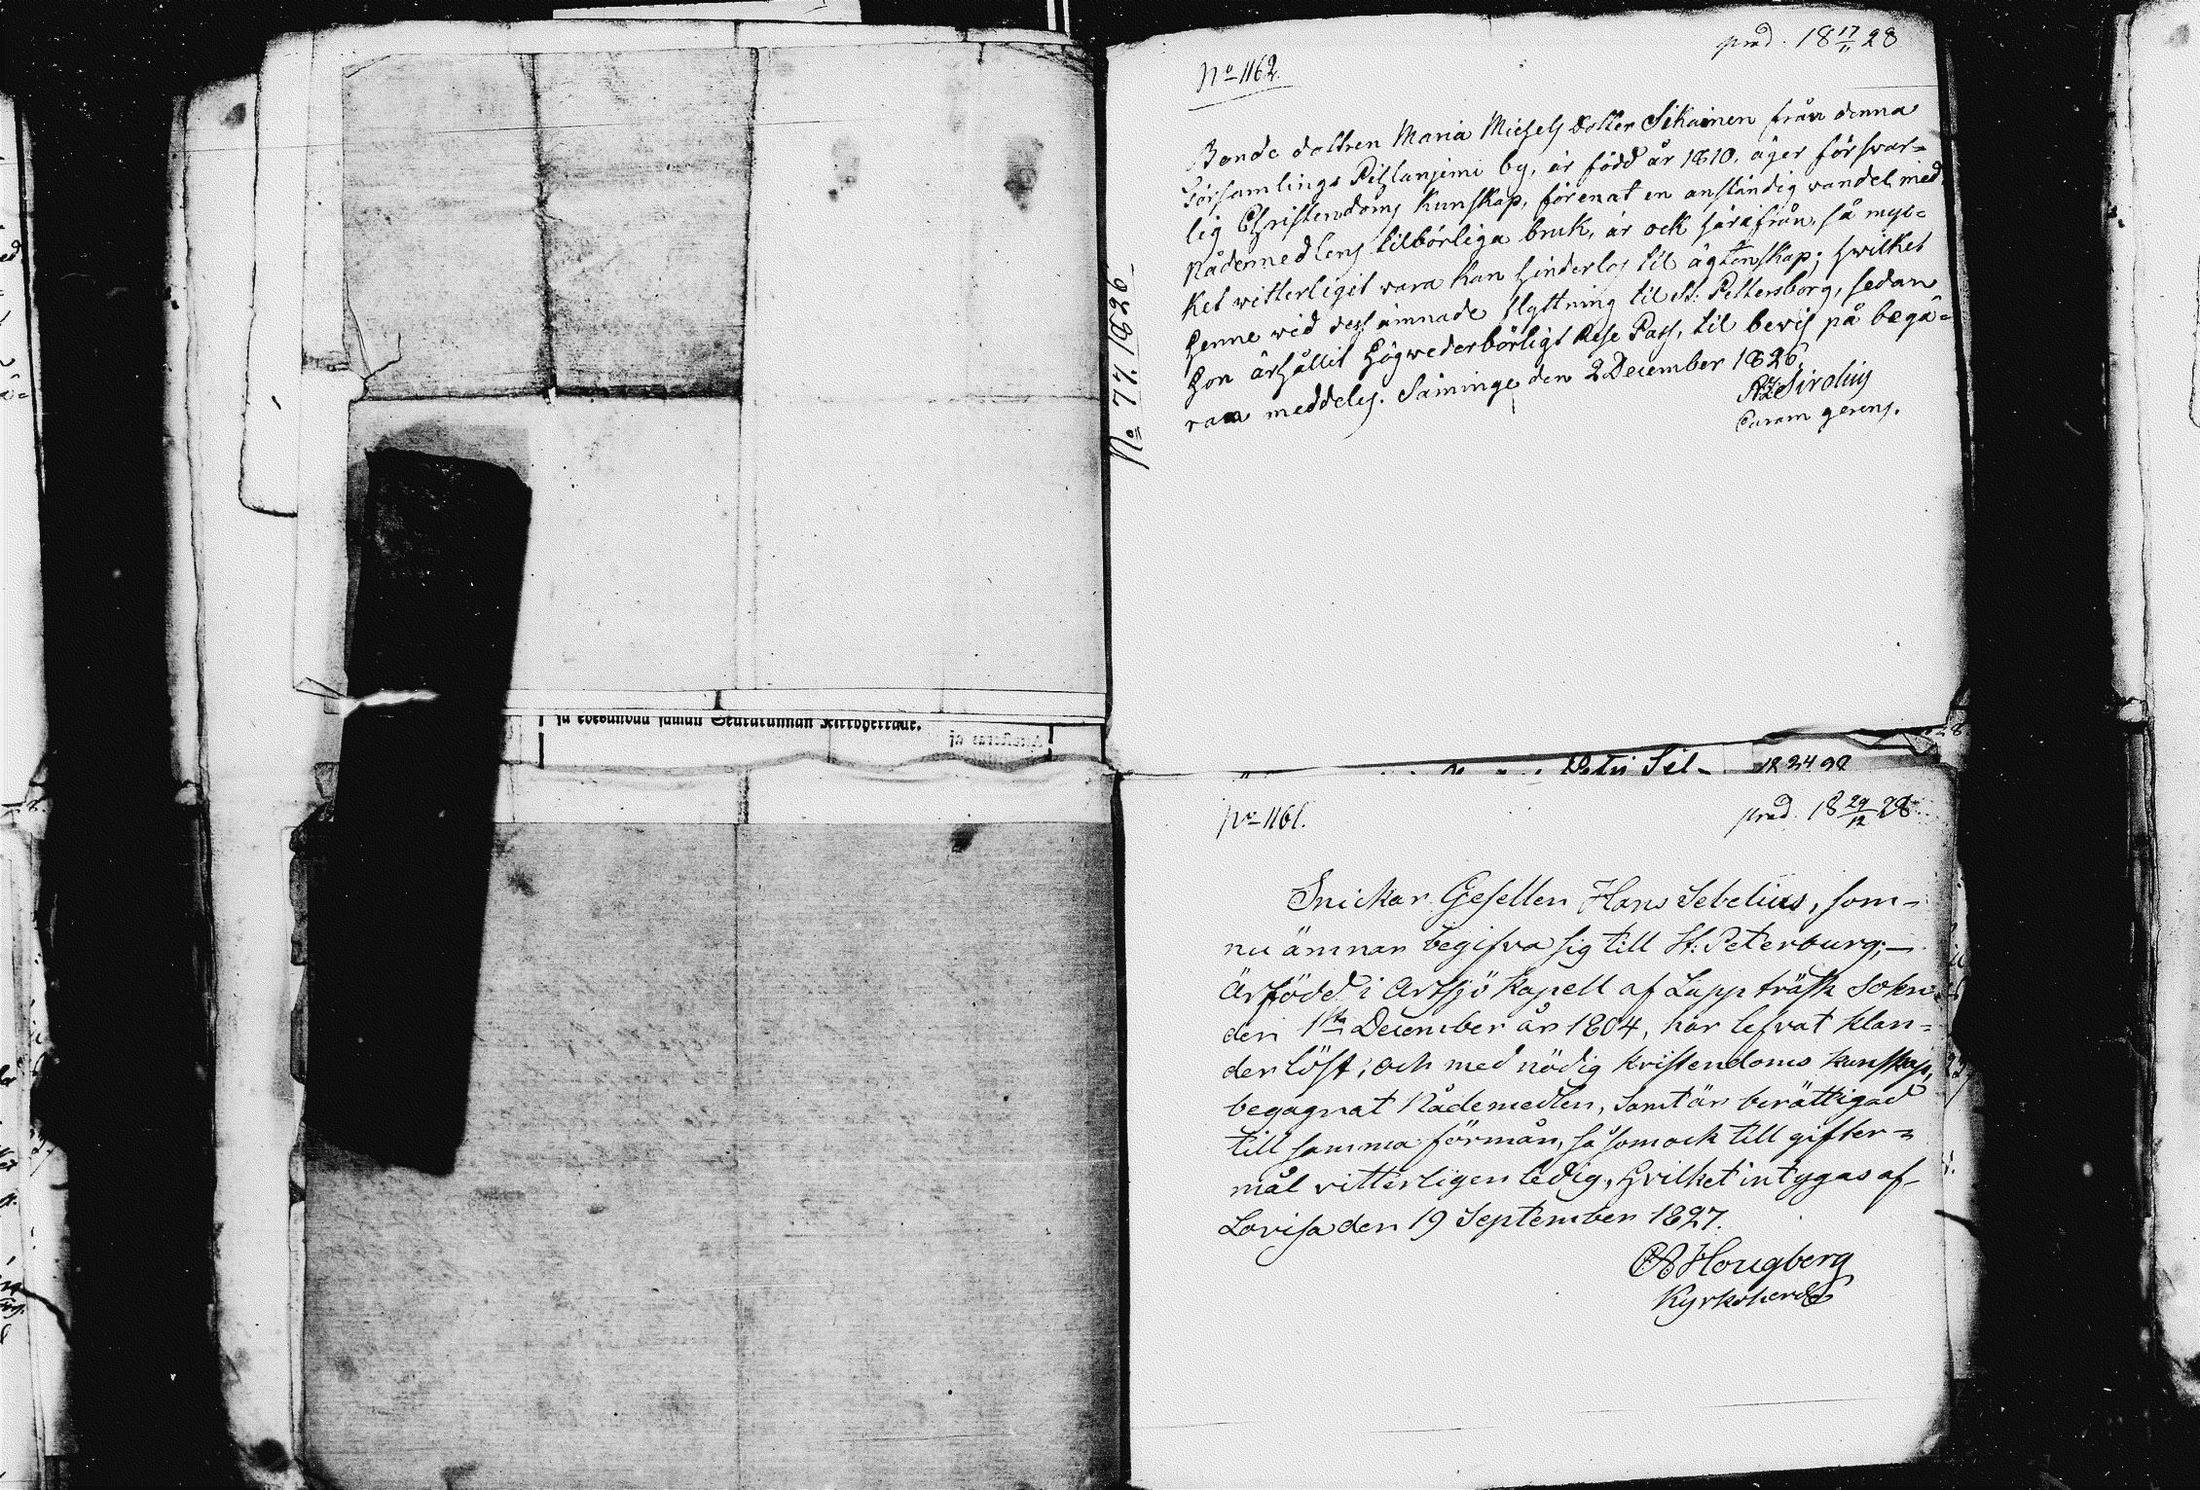 prod. 18 17/11 28
No 1162.
Bonde dottren Maria Michels dotter Sikainen från denna
Församlings Pihlanjemi by, är född år 1810, äger försvar=
lig Christendoms kunskap, förenat en anständig vandel med
Nådemedlens tilbörliga bruk, är ock härifrån, så myc=
ket witterligit vara kan hinderlös til ägtenskap; hwilket
henne wid dess ämnade flyttning til St: Pettersborg, sedan
hon ärhållit högwederbörligt Rese Pass, til bevis på begä=
ran meddeles. Säminge den 2 December 1826.
Sirelius
Curam gerens.
No 77. 1826
Petri Sil-
No 1161.
prod. 18 29/12 28
Snickar Gesellen Hans Sebelius, som-
nu ämnar begifva sig till St: Peterburg;-
är född i Artsjö Kapell af Lappträsk Sokn
den 1sta December år 1804, har lefvat klan=
derlöst, och med nödig kristendoms kunskap,
begagnat Nådemedlen, samt är berättigad
till samma förmån, så som ock till gifter=
mål vitterligen ledig, hvilket intygas af-
Lovisa den 19 September 1827.
Hougberg
Kyrkoherde